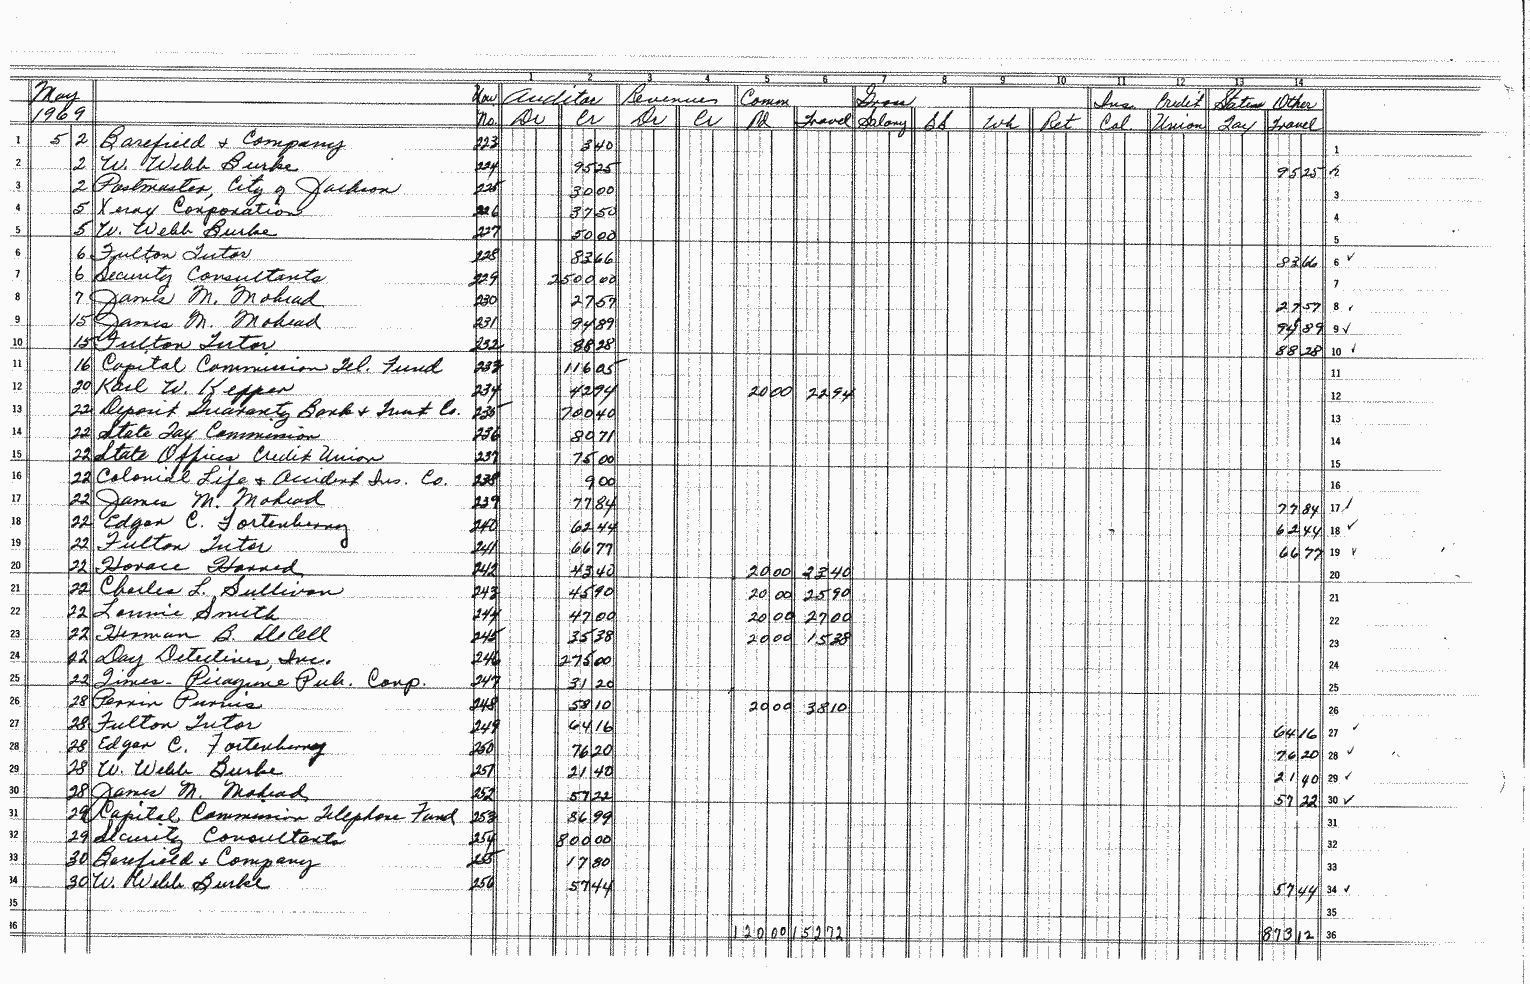 1 2 3 4 5 6 7 8 9 10 11 12 13 14
May Auditor Revenues Comm Gross Ins. Credit States Other
1969 No. Dr Cr Dr Cr Pd Travel Salary SS Wh Ret Col. Union Tax Travel
1 5 2 Barefield & Company 223 3 40 1
2 2 W. Webb Burke 224 95 25 95 25 2
3 2 Postmaster, City of Jackson 225 30 00 3
4 5 Xerox Corporation 226 37 50 4
5 5 W. Webb Burke 227 50 00 5
6 6 Fulton Tutor 228 83 66 83 66 6 ✓
7 6 Security Consultants 229 2500 00 7
8 7 James M. Mohead 230 27 57 27 57 8
9 15 James M. Mohead 231 94 89 94 89 9 ✓
10 15 Fulton Tutor 232 88 28 88 28 10 ✓
11 16 Capital Commission Tel. Fund 233 116 05 11
12 20 Karl W. Kepper 234 42 94 20 00 22 94 12
13 22 Deposit Guaranty Bank & Trust Co. 235 700 40 13
14 22 State Tax Commission 236 80 71 14
15 22 State Offices Credit Union 237 75 00 15
16 22 Colonial Life & Accident Ins. Co. 238 9 00 16
17 22 James M. Mohead 239 77 84 77 84 17 ✓
18 22 Edgar C. Fortenberry 240 62 44 62 44 18 ✓
19 22 Fulton Tutor 241 66 77 66 77 19 ✓
20 22 Horace Harned 242 43 40 20 00 23 40 20
21 22 Charles L. Sullivan 243 45 90 20 00 25 90 21
22 22 Lonnie Smith 244 47 00 20 00 27 00 22
23 22 Herman B. DeCell 245 35 38 20 00 15 38 23
24 22 Day Detectives, Inc. 246 275 00 24
25 22 Times-Picayune Pub. Corp. 247 31 20 25
26 28 Perrin Purvis 248 58 10 20 00 38 10 26
27 28 Fulton Tutor 249 64 16 64 16 27 ✓
28 28 Edgar C. Fortenberry 250 76 20 76 20 28 ✓
29 28 W. Webb Burke 251 21 40 21 40 29 ✓
30 28 James M. Mohead 252 57 22 57 22 30 ✓
31 29 Capital Commission Telephone Fund 253 86 99 31
32 29 Security Consultants 254 800 00 32
33 30 Barefield & Company 255 17 80 33
34 30 W. Webb Burke 256 57 44 57 44 34 ✓
35 35
36 120 00 152 72 873 12 36